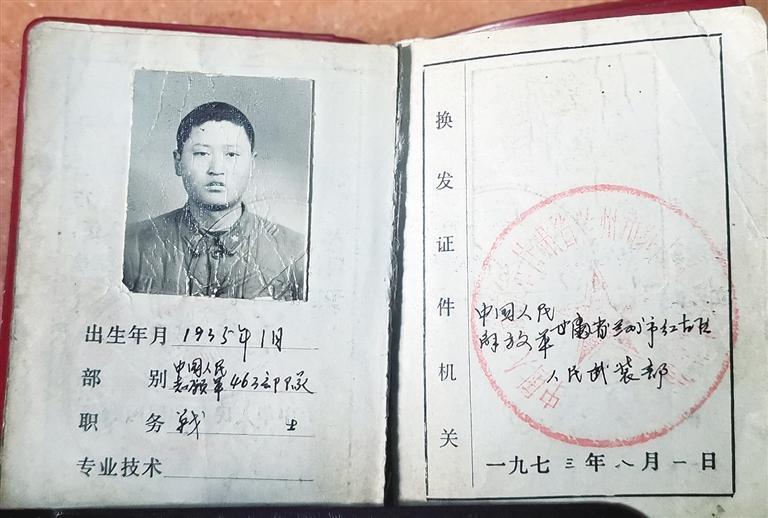 出生年月 1935年1月
部 别 中国人民
志愿军463部队
职 务 战 士
专业技术
换发证件机关
中国人民
解放军甘肃省兰州市红古区
人民武装部
一九七三年八月一日